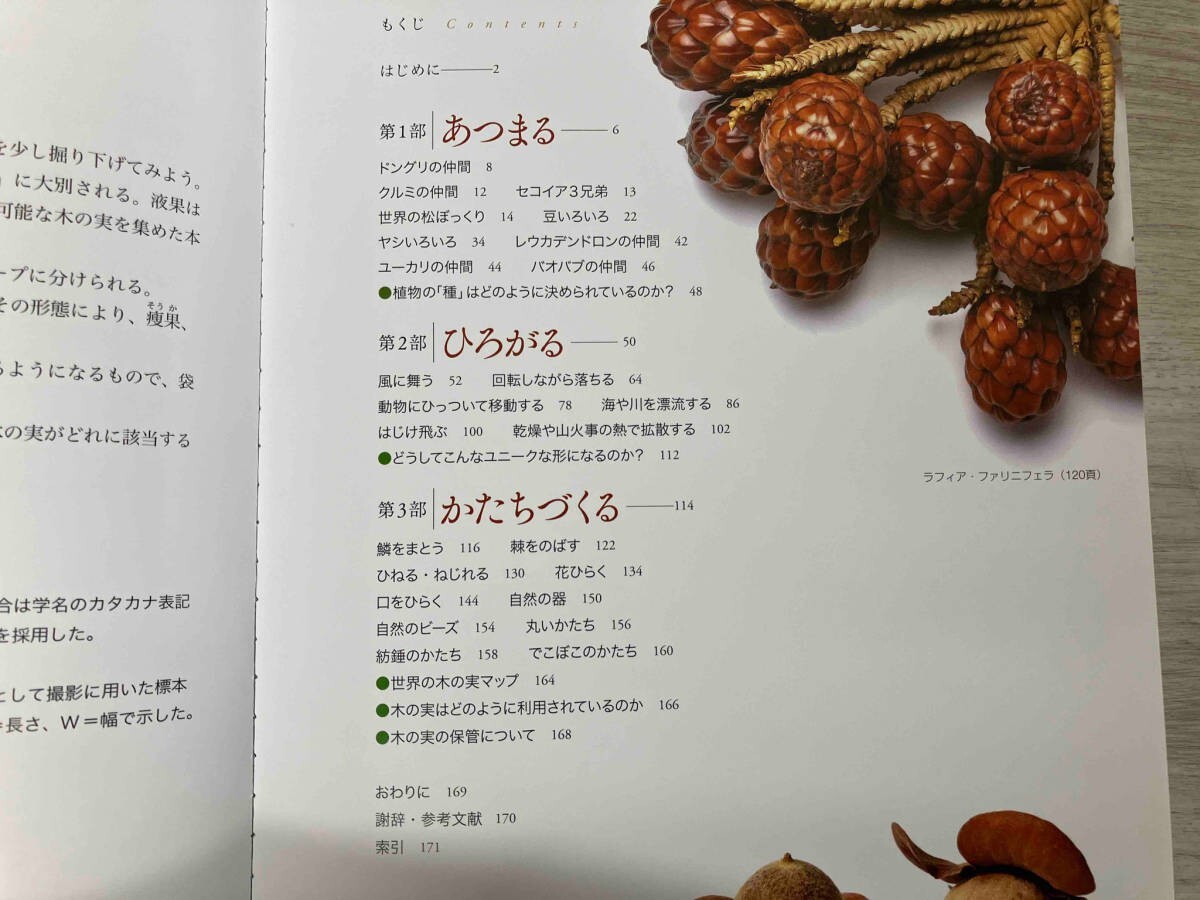 を少し掘り下げてみよう。
」に大別される。液果は
可能な木の実を集めた本
ープに分けられる。
そうか
その形態により、痩果、
るようになるもので、袋
木の実がどれに該当する
合は学名のカタカナ表記
を採用した。
として撮影に用いた標本
=長さ、W=幅で示した。
もくじ Contents
はじめに―――2
第1部 あつまる――― 6
ドングリの仲間 8
クルミの仲間 12 セコイア3兄弟 13
世界の松ぼっくり 14 豆いろいろ 22
ヤシいろいろ 34 レウカデンドロンの仲間 42
ユーカリの仲間 44 バオバブの仲間 46
●植物の「種」はどのように決められているのか? 48
第2部 ひろがる――― 50
風に舞う 52 回転しながら落ちる 64
動物にひっついて移動する 78 海や川を漂流する 86
はじけ飛ぶ 100 乾燥や山火事の熱で拡散する 102
●どうしてこんなユニークな形になるのか? 112
第3部 かたちづくる―――114
鱗をまとう 116 棘をのばす 122
ひねる・ねじれる 130 花ひらく 134
口をひらく 144 自然の器 150
自然のビーズ 154 丸いかたち 156
紡錘のかたち 158 でこぼこのかたち 160
●世界の木の実マップ 164
●木の実はどのように利用されているのか 166
●木の実の保管について 168
おわりに 169
謝辞・参考文献 170
索引 171
ラフィア・ファリニフェラ(120頁)